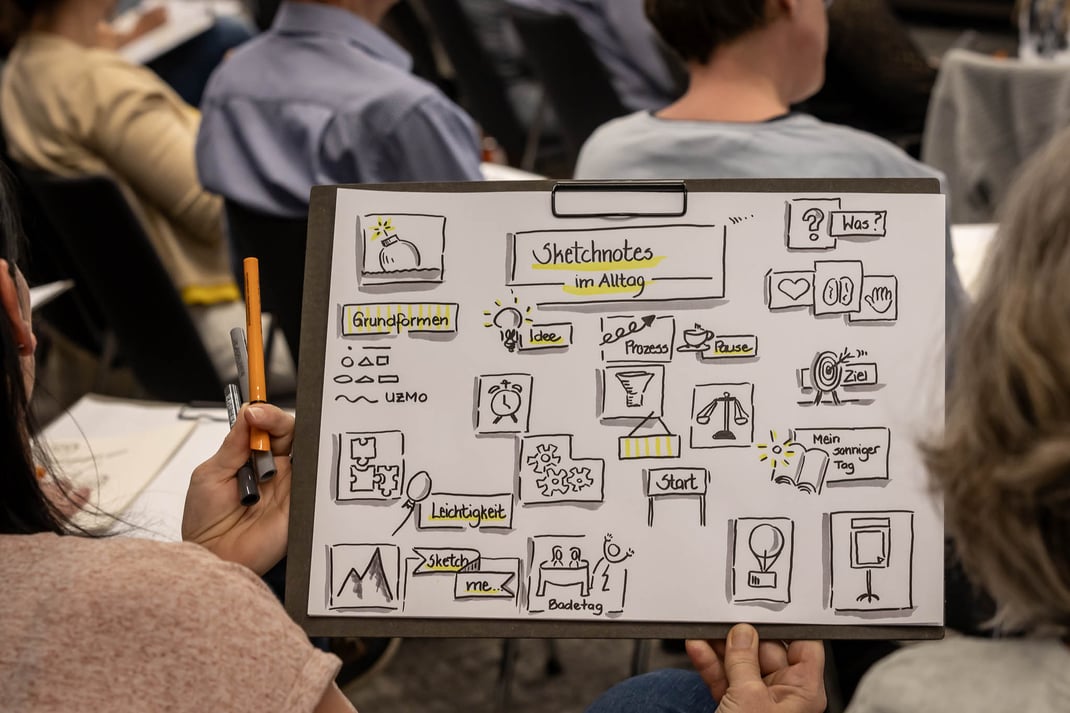 Sketchnotes
im Alltag
?
Was?
Grundformen
Idee
Prozess
Pause
Ziel
UZMO
Mein
sonniger
Tag
Start
Leichtigkeit
Sketch
me...
Badetag